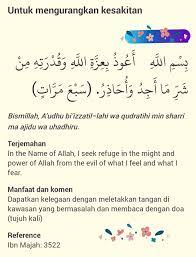 Untuk mengurangkan kesakitan
بِسْمِ اللَّهِ أَعُوذُ بِعِزَّةِ اللَّهِ وَقُدْرَتِهِ مِنْ
شَرِّ مَا أَجِدُ وَأُحَاذِرُ. (سَبْعَ مَرَّاتٍ)
Bismillah, A'udhu bi'izzatil-lahi wa qudratihi min sharri
ma ajidu wa uhadhiru.
Terjemahan
In the Name of Allah, I seek refuge in the might and
power of Allah from the evil of what I feel and what I
fear.
Manfaat dan komen
Dapatkan kelegaan dengan meletakkan tangan di
kawasan yang bermasalah dan membaca dengan doa
(tujuh kali)
Reference
Ibn Majah: 3522